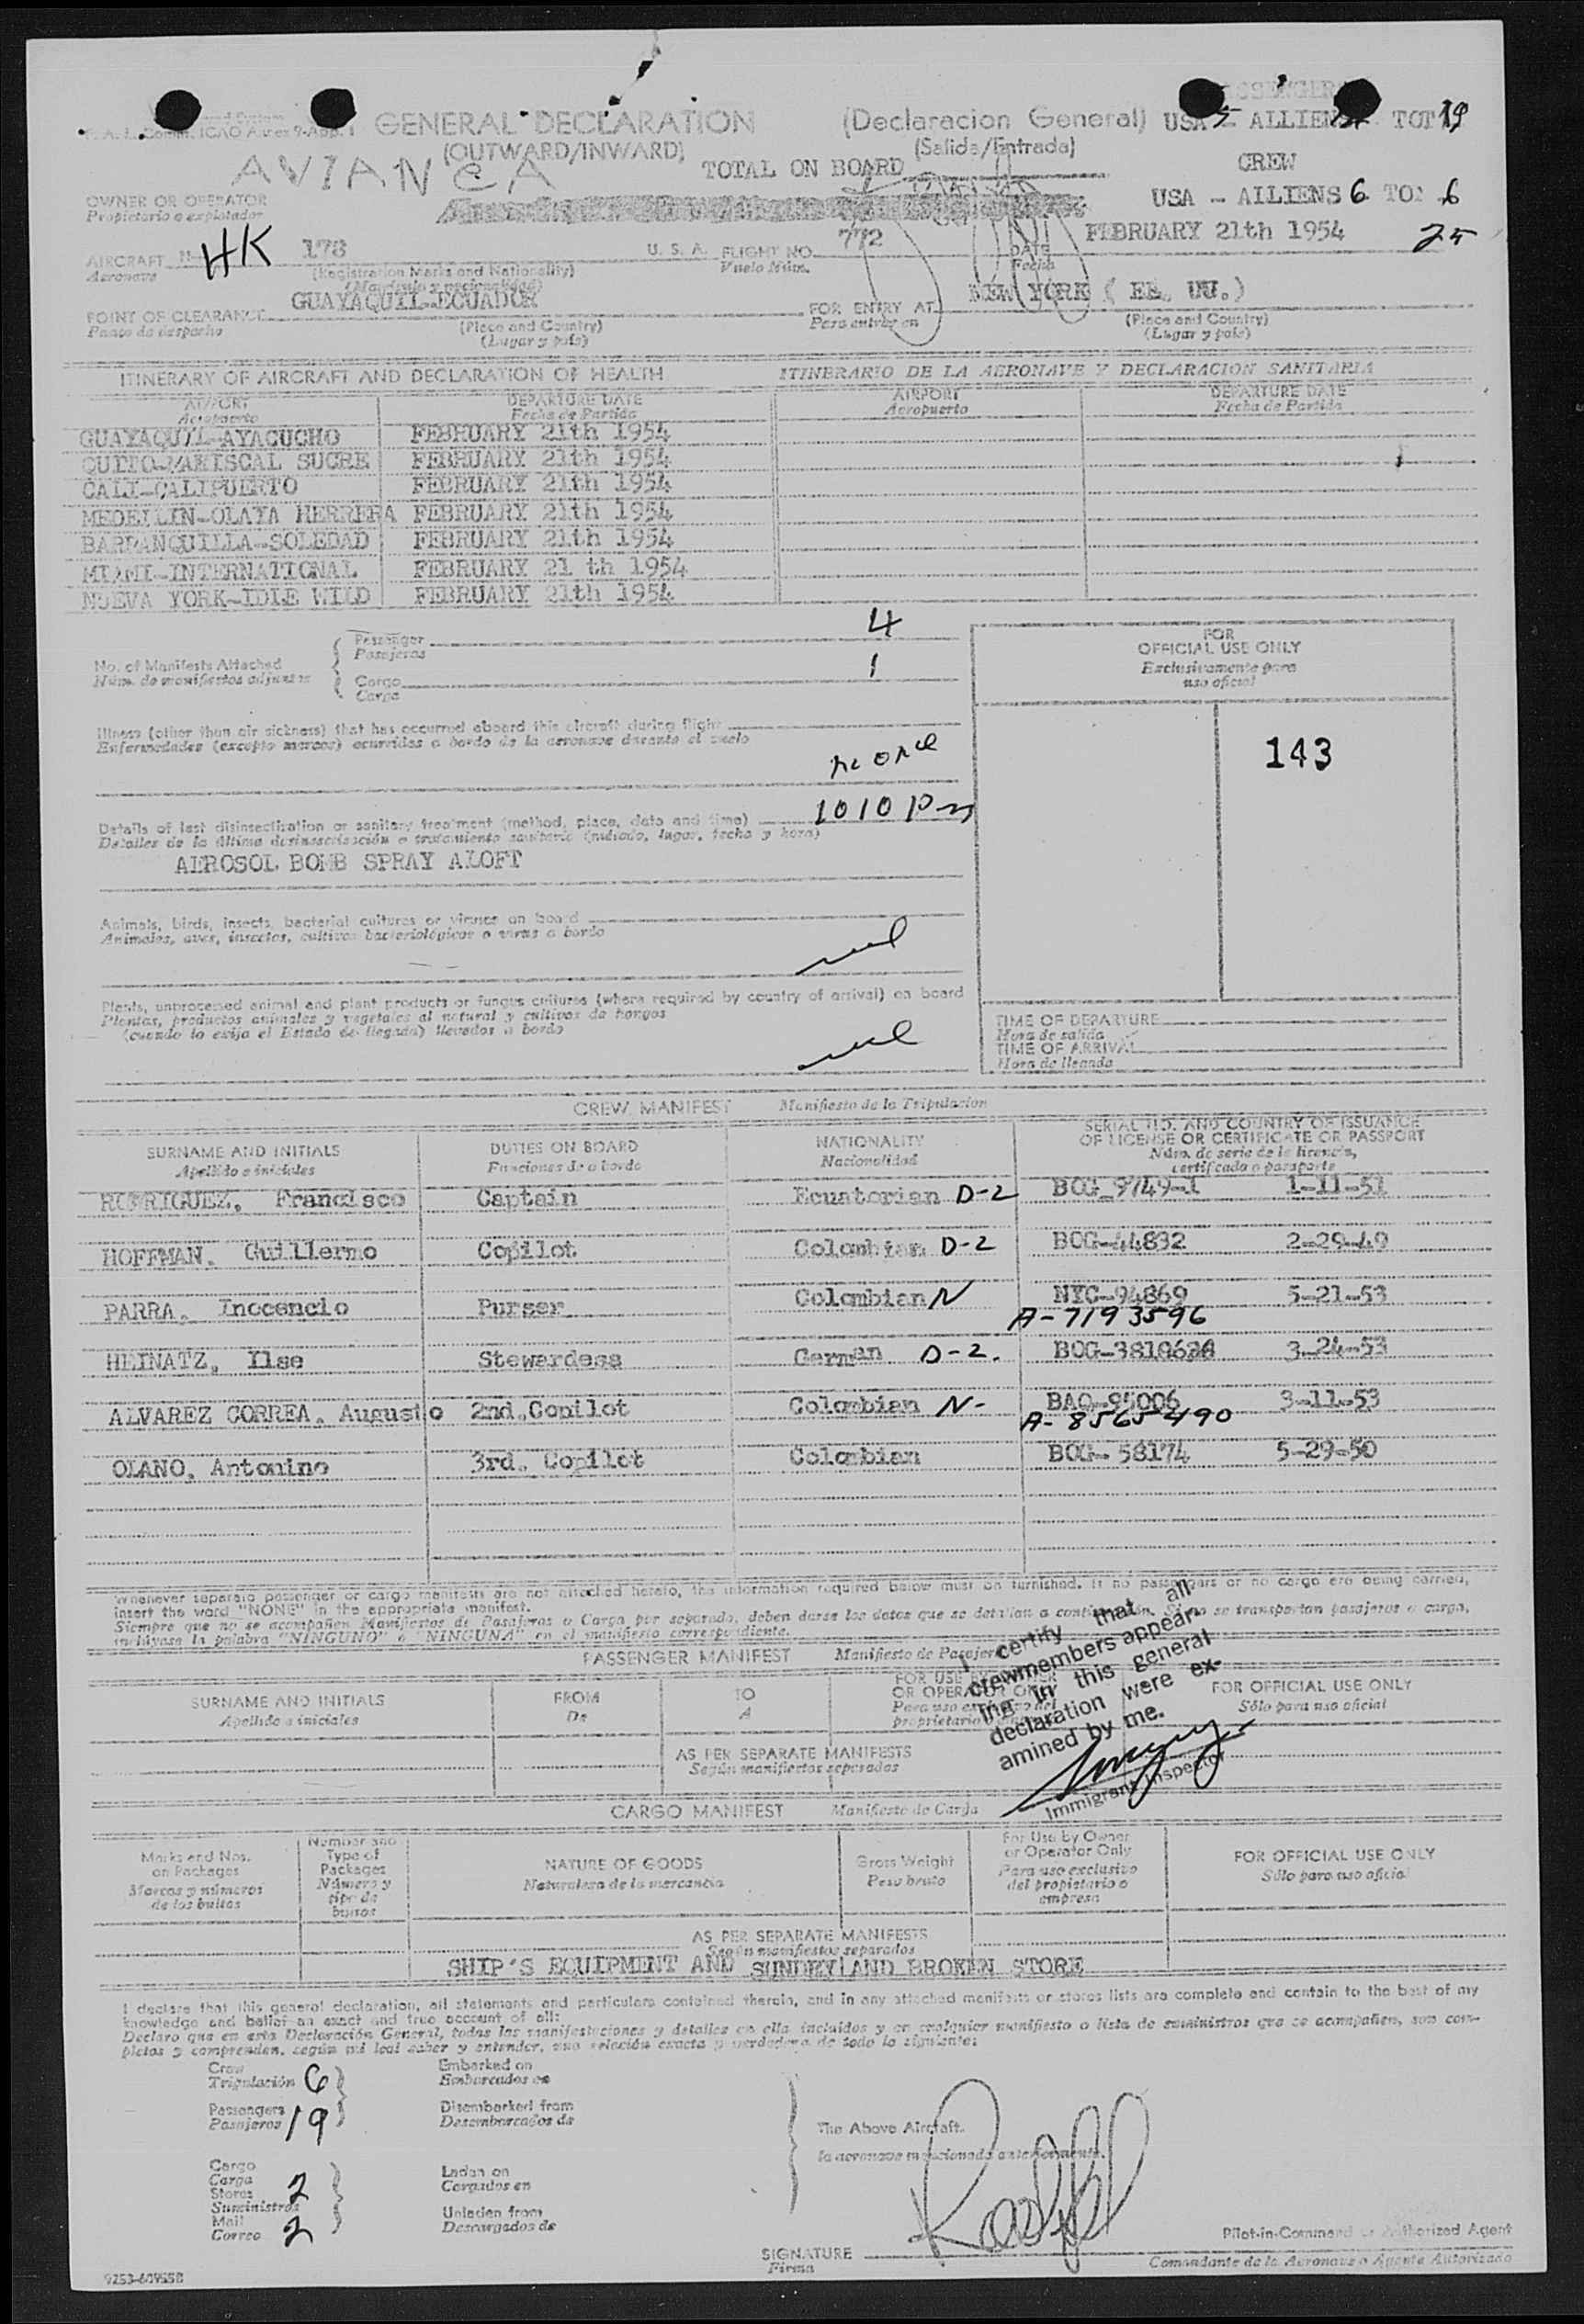 GENERAL DECLARATION (Declaracion General)
(OUTWARD/INWARD) (Salida/Entrada)
USA 5 - ALLIENS TOT 19
AVIANCA
TOTAL ON BOARD
CREW
USA - AILIENS 6 TOT 6
OWNER OR OPERATOR
Propietario o explotador
AIRCRAFT N HK 178 U. S. A. FLIGHT NO. 772 DATE FEBRUARY 21th 1954 25
Aeronave (Registration Marks and Nationality) Vuelo Núm. Fecha
(Matrícula y nacionalidad)
POINT OF CLEARANCE GUAYAQUIL-ECUADOR FOR ENTRY AT NEW YORK ( EE. UU.)
Punto de despacho (Place and Country) Para entrar en (Place and Country)
(Lugar y país) (Lugar y país)
ITINERARY OF AIRCRAFT AND DECLARATION OF HEALTH ITINERARIO DE LA AERONAVE Y DECLARACION SANITARIA
AIRPORT DEPARTURE DATE AIRPORT DEPARTURE DATE
Aeropuerto Fecha de Partida Aeropuerto Fecha de Partida
GUAYAQUIL-AYACUCHO FEBRUARY 21th 1954
QUITO-MARISCAL SUCRE FEBRUARY 21th 1954
CALI-CALIPUERTO FEBRUARY 21th 1954
MEDELLIN-OLAYA HERRERA FEBRUARY 21th 1954
BARRANQUILLA-SOLEDAD FEBRUARY 21th 1954
MIAMI-INTERNATIONAL FEBRUARY 21 th 1954
NUEVA YORK-IDLE WILD FEBRUARY 21th 1954
No. of Manifests Attached
Núm. de manifiestos adjuntos
Passenger 4
Pasajeros
Cargo 1
Carga
FOR
OFFICIAL USE ONLY
Exclusivamente para
uso oficial
143
Illness (other than air sickness) that has occurred aboard this aircraft during flight
Enfermedades (excepto mareos) ocurridas a bordo de la aeronave durante el vuelo
none
Details of last disinsectization or sanitary treatment (method, place, date and time) 1010 Pm
Detalles de la última desinsectisación o tratamiento sanitario (método, lugar, fecha y hora)
AEROSOL BOMB SPRAY ALOFT
Animals, birds, insects, bacterial cultures or viruses on board
Animales, aves, insectos, cultivos bacteriológicos o virus a bordo
nil
Plants, unprocessed animal and plant products or fungus cultures (where required by country of arrival) on board
Plantas, productos animales y vegetales al natural y cultivos de hongos
(cuando lo exija el Estado de llegada) llevados a bordo
nil
TIME OF DEPARTURE
Hora de salida
TIME OF ARRIVAL
Hora de llegada
CREW MANIFEST Manifiesto de la Tripulacion
SURNAME AND INITIALS DUTIES ON BOARD NATIONALITY SERIAL NO. AND COUNTRY OF ISSUANCE
OF LICENSE OR CERTIFICATE OR PASSPORT
Apellido e iniciales Funciones de a bordo Nacionalidad Núm. de serie de la licencia,
certificado o pasaporte
RODRIGUEZ, Francisco Captain Ecuatorian D-2 BOG-9749-1 1-11-51
HOFFMAN, Guillermo Copilot Colombian D-2 BOG-44832 2-29-49
PARRA, Inocencio Purser Colombian N NYC-94869 5-21-53
A-7193596
HEINATZ, Ilse Stewardess German D-2. 3-24-53
ALVAREZ CORREA, Augusto 2nd.Copilot Colombian N- BAQ-95006 3-11-53
A-8565490
OLANO, Antonino 3rd. Copilot Colombian BOG- 58174 5-29-50
Whenever separate passenger or cargo manifests are not attached hereto, the information required below must be furnished. If no passengers or no cargo are being carried,
insert the word "NONE" in the appropriate manifest.
Siempre que no se acompañen Manifiestos de Pasajeros o Carga por separado, deben darse los datos que se detallan a continuación. Si no se transportan pasajeros o carga,
inclúyase la palabra "NINGUNO" o "NINGUNA" en el manifiesto correspondiente.
PASSENGER MANIFEST Manifiesto de Pasajeros
I certify that all
crewmembers appear-
ing in this general
declaration were ex-
amined by me.
Immigrant Inspector
SURNAME AND INITIALS FROM TO FOR OFFICIAL USE ONLY
Apellido e iniciales De A Sólo para uso oficial
AS PER SEPARATE MANIFESTS
Según manifiestos separados
CARGO MANIFEST Manifiesto de Carga
Marks and Nos.
on Packages
Marcas y números
de los bultos
Number and
Type of
Packages
Número y
tipo de
bultos
NATURE OF GOODS
Naturaleza de la mercancía
Gross Weight
Peso bruto
For Use by Owner
or Operator Only
Para uso exclusivo
del propietario o
empresa
FOR OFFICIAL USE ONLY
Sólo para uso oficial
AS PER SEPARATE MANIFESTS
Según manifiestos separados
SHIP'S EQUIPMENT AND SUNDRY AND BROKEN STORE
I declare that this general declaration, all statements and particulars contained therein, and in any attached manifests or stores lists are complete and contain to the best of my
knowledge and belief an exact and true account of all:
Declaro que en esta Declaración General, todas las manifestaciones y detalles en ella incluidos y en cualquier manifiesto o lista de suministros que se acompañen, son com-
pletos y comprenden, según mi leal saber y entender, una relación exacta y verdadera de todo lo siguiente:
Crew Embarked on
Tripulación 6 Embarcados en
Passengers Disembarked from
Pasajeros 19 Desembarcados de
The Above Aircraft.
la aeronave mencionada anteriormente.
Cargo Laden on
Carga Cargados en
Stores 2
Suministros Unladen from
Mail Descargados de
Correo 2
SIGNATURE Pilot-in-Command or Authorized Agent
Firma Comandante de la Aeronave o Agente Autorizado
9253-60955B